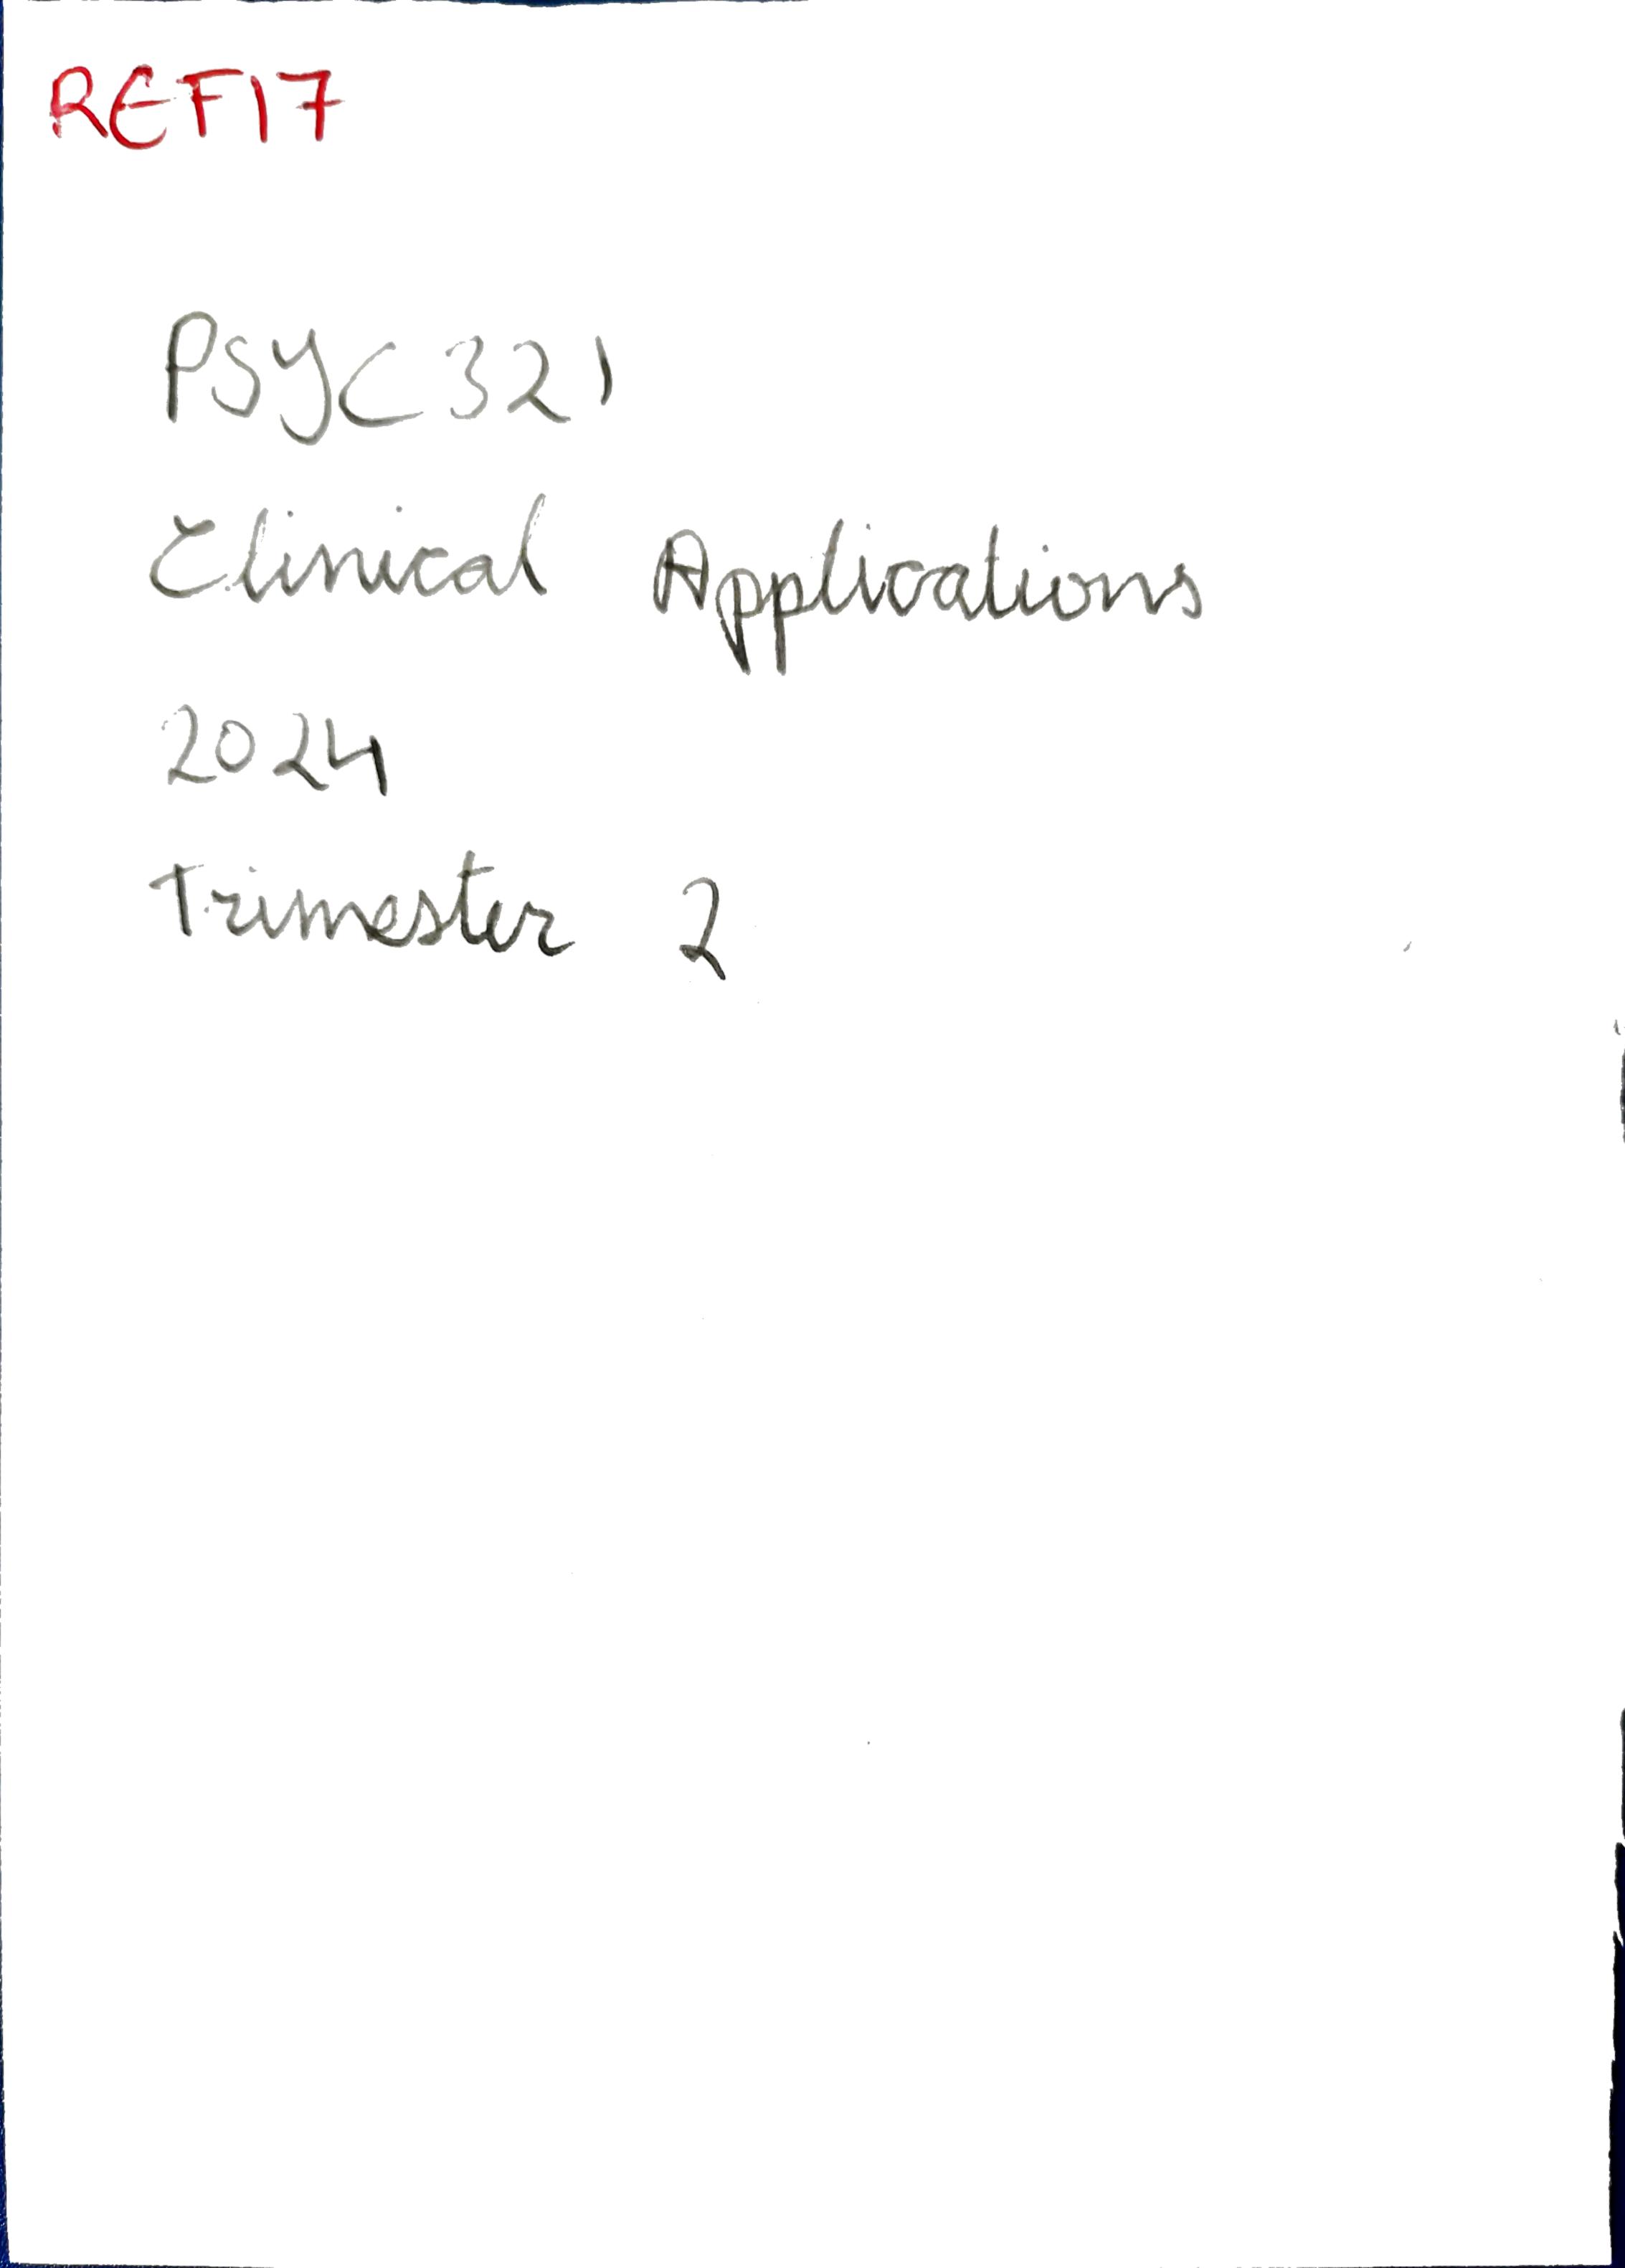 REF17
PSYC321
Clinical Applications
2024
Trimester 2